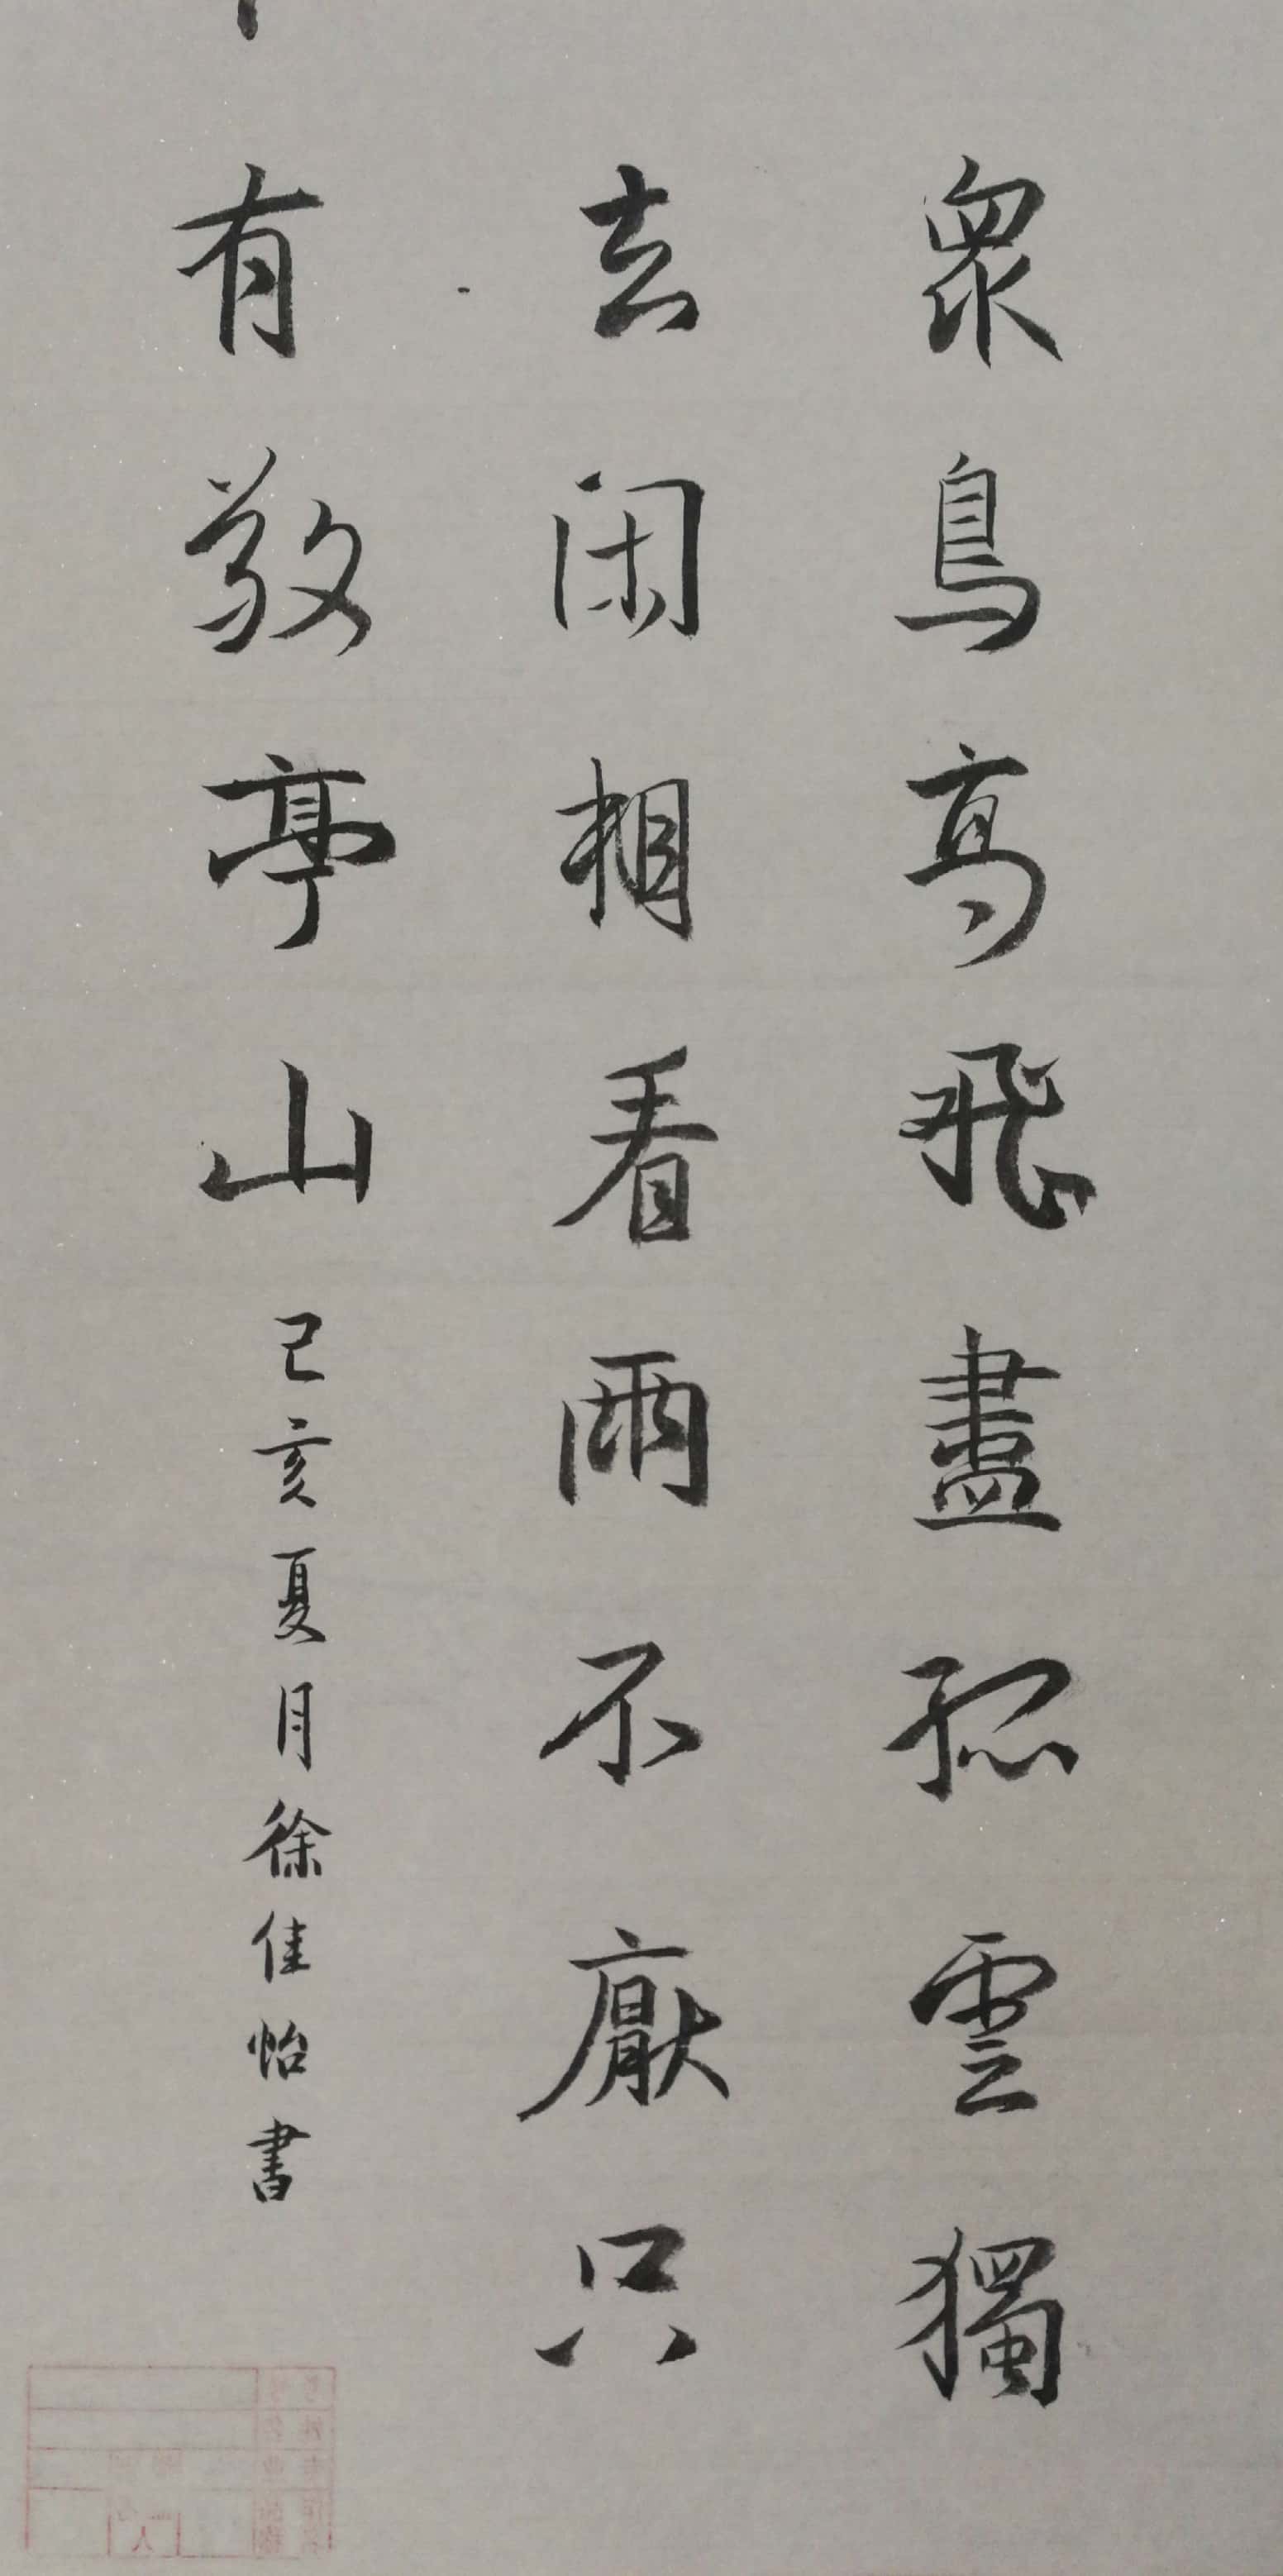 眾鳥高飛盡孤雲獨
去閑相看兩不厭只
有敬亭山
己亥夏月徐佳怡書